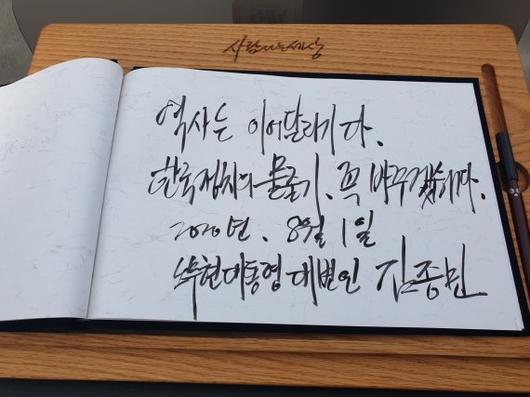 사람사는세상
역사는 이어달리기다.
한국정치의 물줄기, 꼭 바꾸겠습니다.
2020년. 8월 1일
노무현대통령 대변인 김종민